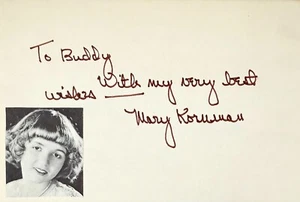 To Buddy
With my very best
wishes
Mary Kornman